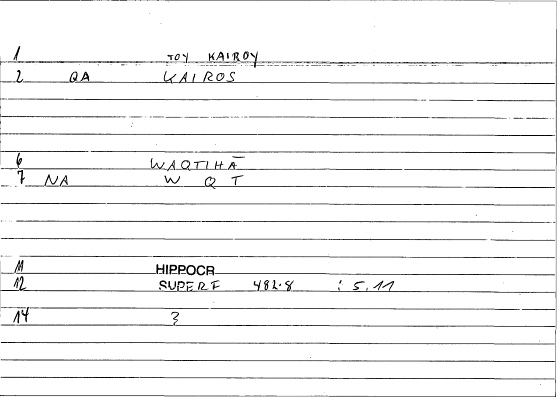 1 TOY KAIROY
2 QA KAIROS
6 WAQTIHĀ
7 NA W Q T
11 HIPPOCR
12 SUPERF 482.8 : 5.11
14 3